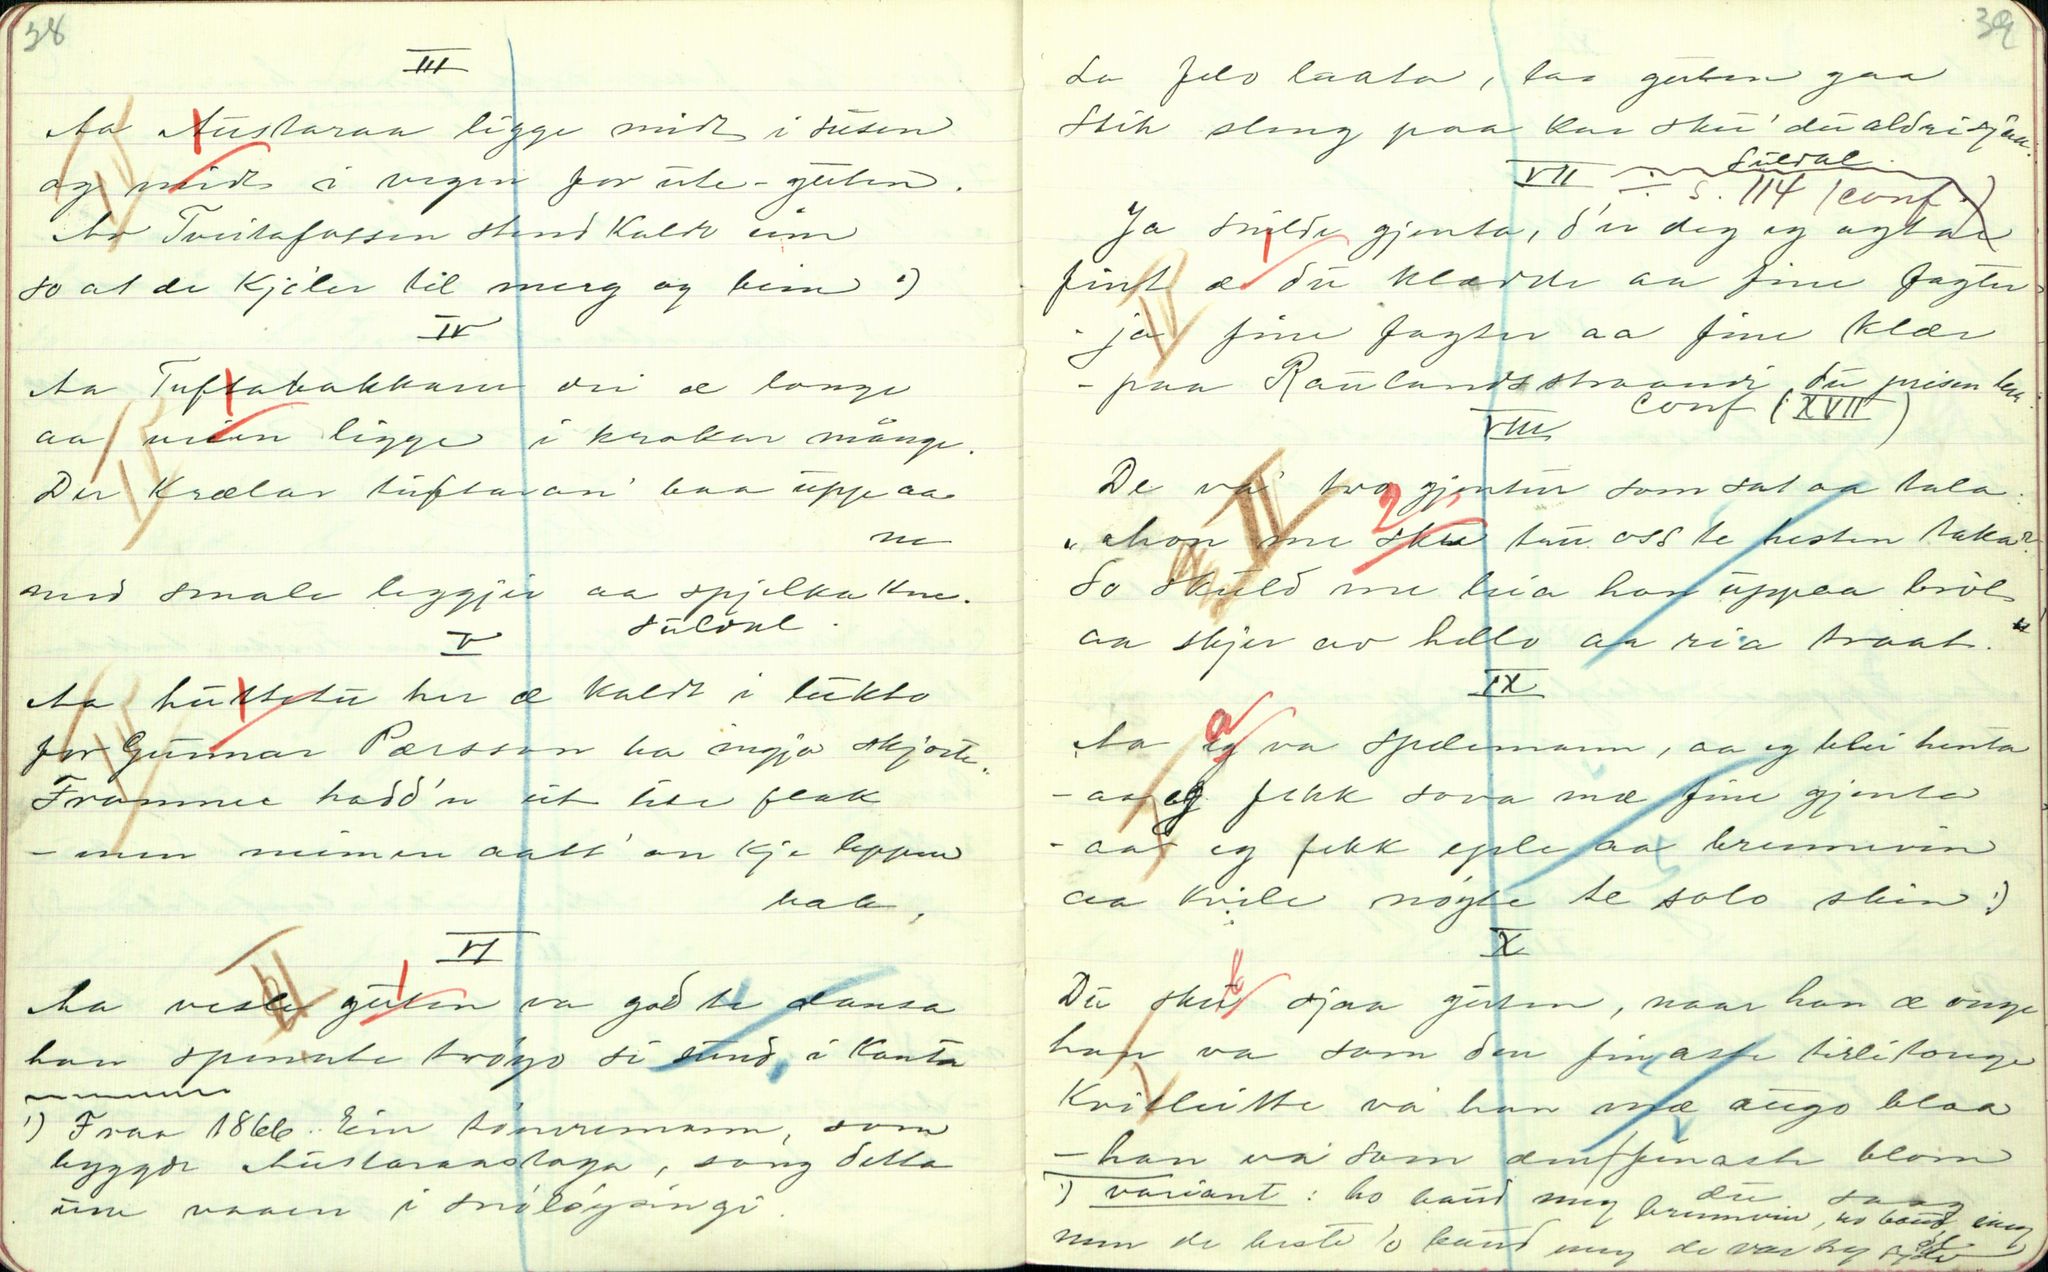 38
III
Aa Austaraa ligge midt i susen
og midt i vegen for ute-guten.
Av Tveitafossen stend kaldt eim
so at de kjöler til merg og bein ¹)
IV
Aa Tuftabakkane dei æ lange
aa veien ligge i krokar mange.
Der krælar tuftaran' baa uppaa
ne
med smale leggjir aa spjelka kne.
V Suldal.
Aa huttetu her æ kaldt i lukto
for Gunnar Pærsson ha ingja skjorte.
Frammea hadd'n eit lite flak
- men mimen aatt' an kje leppen
bak.
VI
Aa vesle guten va god te dansa
han spennte tröyo si sund i kanta
¹) Fraa 1866. Ein tömremann, som
bygde Austaraastoga, song detta
um vaaren i snölöysingi.
39
So felo laata, las guten gaa
Slik sleng paa kar sku' du aldri sjaa.
VII Suldal. S. 114 (conf.)
Ja snilde gjenta, d'er deg eg agtar
fint æ du klædde aa fine fagter
- ja fine fagter aa fine klær
- paa Raulandsstraandi du prisen ber.
conf (XVII)
VIII
De va' two gjentur som sat aa tala:
"Hvon me sku tru oss te hesten taka?
So skuld me leia han uppaa bröt
aa skjer av hello aa ria traat."
IX
Aa eg va spelemann, aa eg blei henta
- aa eg fekk sova mæ fine gjenta
- aa eg fekk eple aa brennevin
aa kvile nögde te solo skin ¹)
X
Du sku sjaa guten, naar han æ onge
han va som den finaste tirlitonge
Kvitleitte va' han mæ augo blaa
- han va som den finaste blom
du saag
¹) variant: ho baud meg brennevin, ho baud meg öl
men de beste 'o baud meg de var seg sjöl